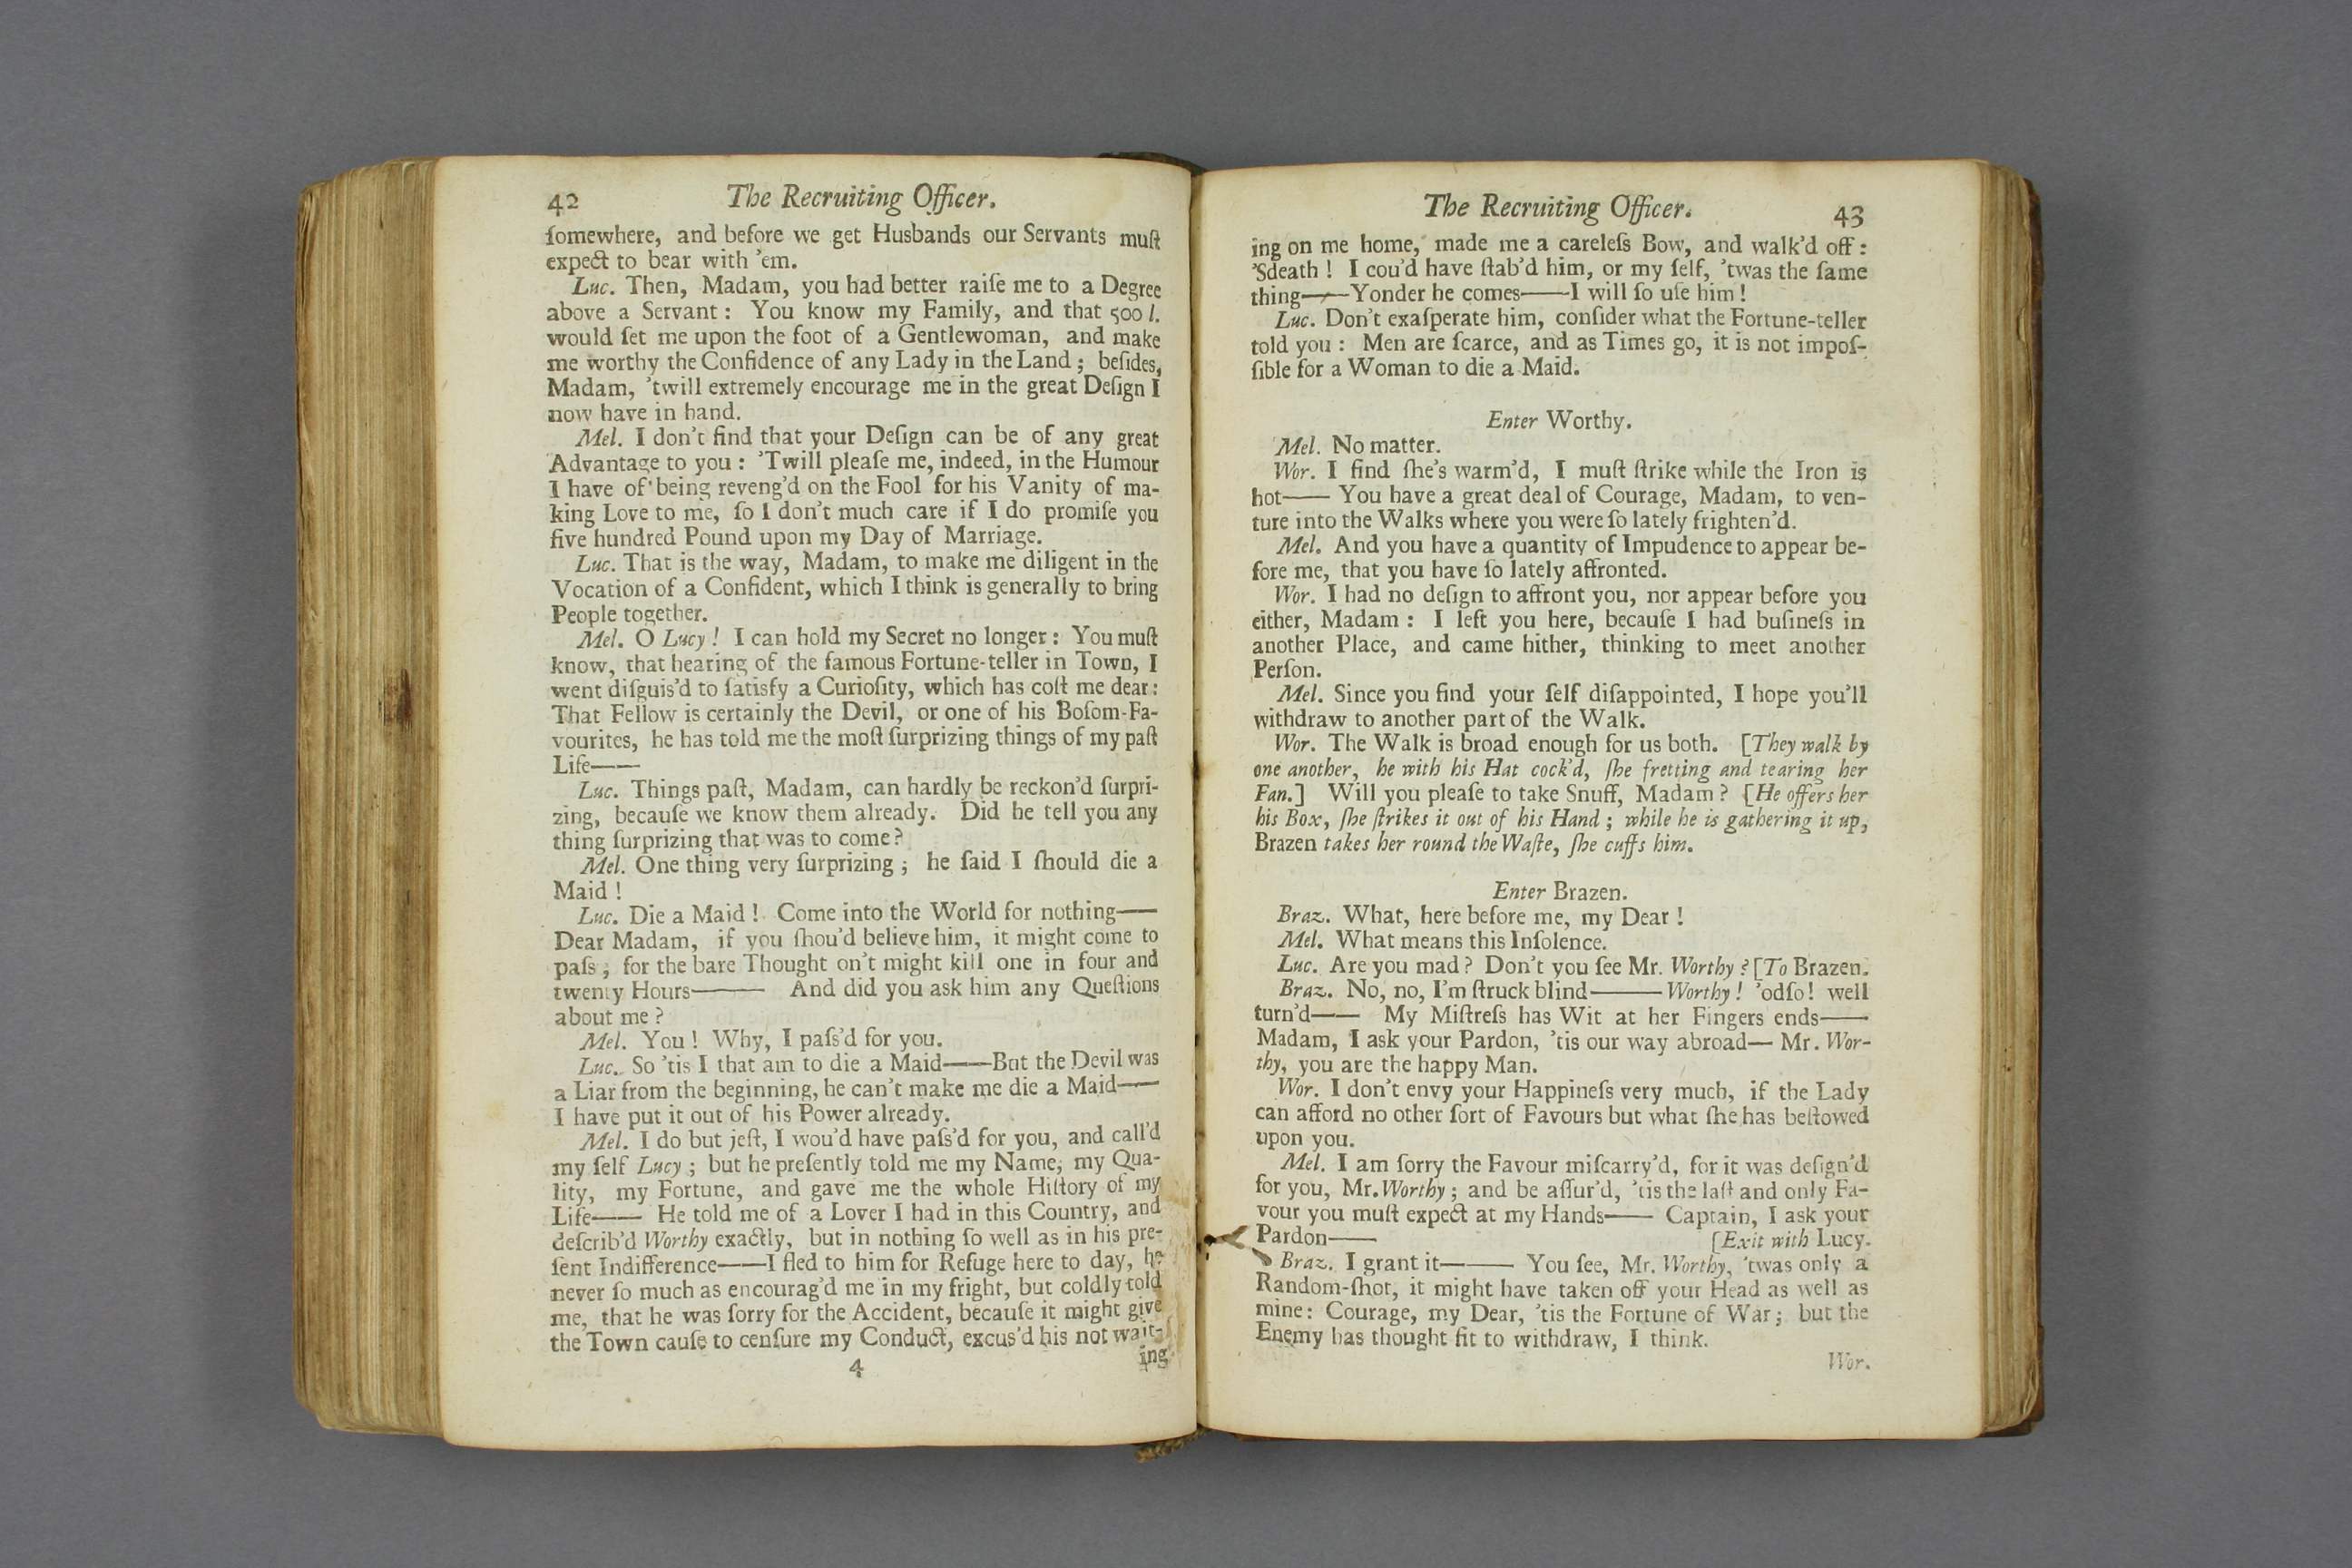 42 The Recruiting Officer.
ſomewhere, and before we get Husbands our Servants muſt
expect to bear with 'em.
Luc. Then, Madam, you had better raiſe me to a Degree
above a Servant: You know my Family, and that 500 l.
would ſet me upon the foot of a Gentlewoman, and make
me worthy the Confidence of any Lady in the Land; beſides,
Madam, 'twill extremely encourage me in the great Deſign I
now have in hand.
Mel. I don't find that your Deſign can be of any great
Advantage to you: 'Twill pleaſe me, indeed, in the Humour
I have of being reveng'd on the Fool for his Vanity of ma-
king Love to me, ſo I don't much care if I do promiſe you
five hundred Pound upon my Day of Marriage.
Luc. That is the way, Madam, to make me diligent in the
Vocation of a Confident, which I think is generally to bring
People together.
Mel. O Lucy! I can hold my Secret no longer: You muſt
know, that hearing of the famous Fortune-teller in Town, I
went diſguis'd to ſatisfy a Curioſity, which has coſt me dear:
That Fellow is certainly the Devil, or one of his Boſom-Fa-
vourites, he has told me the moſt ſurprizing things of my paſt
Life——
Luc. Things paſt, Madam, can hardly be reckon'd ſurpri-
zing, becauſe we know them already. Did he tell you any
thing ſurprizing that was to come?
Mel. One thing very ſurprizing; he ſaid I ſhould die a
Maid!
Luc. Die a Maid! Come into the World for nothing——
Dear Madam, if you ſhou'd believe him, it might come to
paſs; for the bare Thought on't might kill one in four and
twenty Hours——— And did you ask him any Queſtions
about me?
Mel. You! Why, I paſs'd for you.
Luc. So 'tis I that am to die a Maid——But the Devil was
a Liar from the beginning, he can't make me die a Maid——
I have put it out of his Power already.
Mel. I do but jeſt, I wou'd have paſs'd for you, and call'd
my ſelf Lucy; but he preſently told me my Name, my Qua-
lity, my Fortune, and gave me the whole Hiſtory of my
Life—— He told me of a Lover I had in this Country, and
deſcrib'd Worthy exactly, but in nothing ſo well as in his pre-
ſent Indifference——I fled to him for Refuge here to day, he
never ſo much as encourag'd me in my fright, but coldly told
me, that he was ſorry for the Accident, becauſe it might give
the Town cauſe to cenſure my Conduct, excus'd his not wait-
4 ing
The Recruiting Officer. 43
ing on me home, made me a careleſs Bow, and walk'd off:
'Sdeath! I cou'd have ſtab'd him, or my ſelf, 'twas the ſame
thing——Yonder he comes——I will ſo uſe him!
Luc. Don't exaſperate him, conſider what the Fortune-teller
told you: Men are ſcarce, and as Times go, it is not impoſ-
ſible for a Woman to die a Maid.
Enter Worthy.
Mel. No matter.
Wor. I find ſhe's warm'd, I muſt ſtrike while the Iron is
hot—— You have a great deal of Courage, Madam, to ven-
ture into the Walks where you were ſo lately frighten'd.
Mel. And you have a quantity of Impudence to appear be-
fore me, that you have ſo lately affronted.
Wor. I had no deſign to affront you, nor appear before you
either, Madam: I left you here, becauſe I had buſineſs in
another Place, and came hither, thinking to meet another
Perſon.
Mel. Since you find your ſelf diſappointed, I hope you'll
withdraw to another part of the Walk.
Wor. The Walk is broad enough for us both. [They walk by
one another, he with his Hat cock'd, ſhe fretting and tearing her
Fan.] Will you pleaſe to take Snuff, Madam? [He offers her
his Box, ſhe ſtrikes it out of his Hand; while he is gathering it up,
Brazen takes her round the Waſte, ſhe cuffs him.
Enter Brazen.
Braz. What, here before me, my Dear!
Mel. What means this Inſolence.
Luc. Are you mad? Don't you ſee Mr. Worthy? [To Brazen.
Braz. No, no, I'm ſtruck blind———Worthy! 'odſo! well
turn'd—— My Miſtreſs has Wit at her Fingers ends——
Madam, I ask your Pardon, 'tis our way abroad— Mr. Wor-
thy, you are the happy Man.
Wor. I don't envy your Happineſs very much, if the Lady
can afford no other ſort of Favours but what ſhe has beſtowed
upon you.
Mel. I am ſorry the Favour miſcarry'd, for it was deſign'd
for you, Mr. Worthy; and be aſſur'd, 'tis the laſt and only Fa-
vour you muſt expect at my Hands—— Captain, I ask your
Pardon—— [Exit with Lucy.
Braz. I grant it——— You ſee, Mr. Worthy, 'twas only a
Random-ſhot, it might have taken off your Head as well as
mine: Courage, my Dear, 'tis the Fortune of War; but the
Enemy has thought fit to withdraw, I think.
Wor.